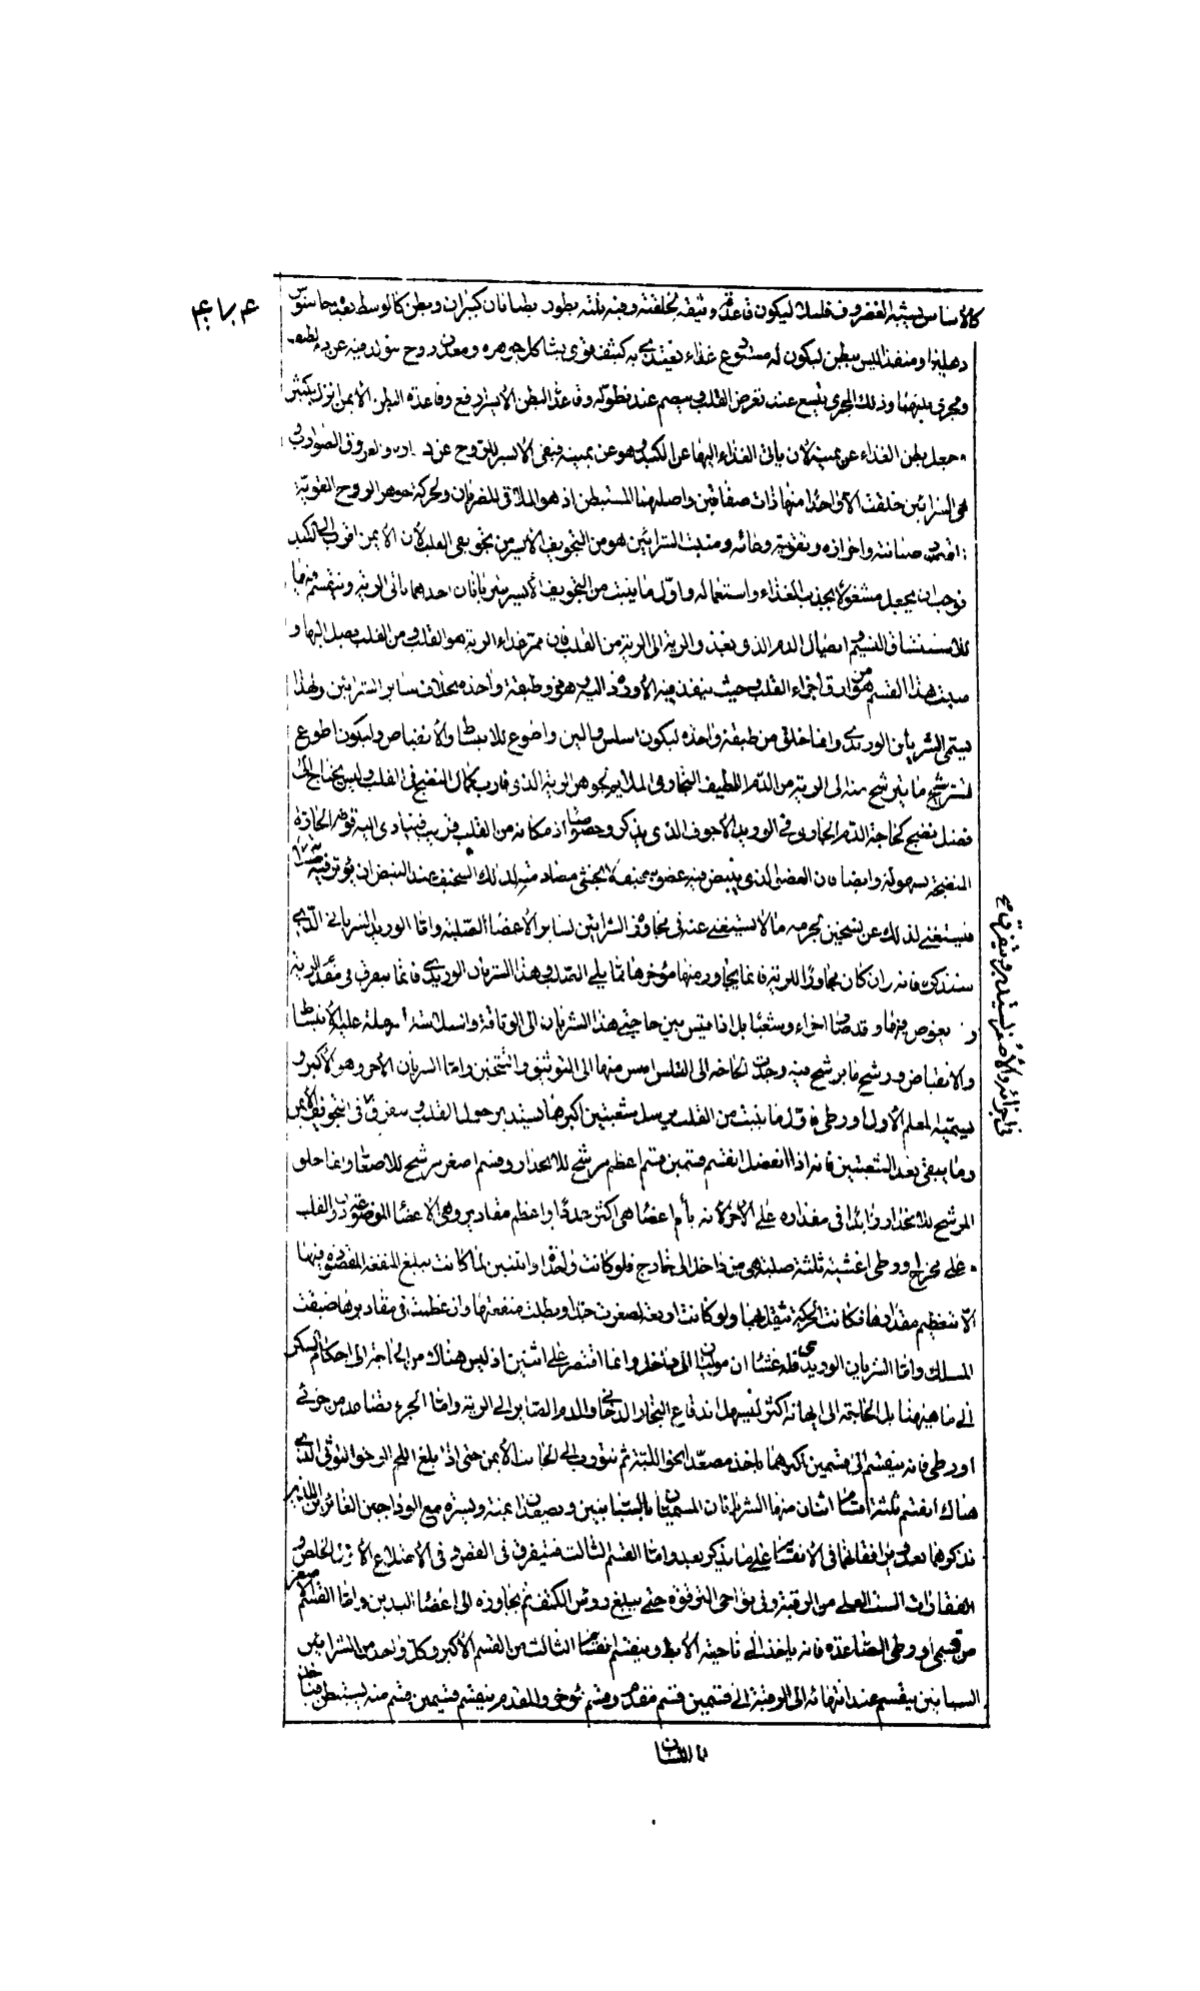 كالأساس يشبه الغضروف قليلا ليكون قاعدة وثيقة لخلقته وفيه ثلثة بطون بطنان كبيران وبطن كالوسط يعده جالينوس
دهليزا ومنفذا ليس ببطن ليكون له مستودع غذاء يغتذى به كثيف قوى يشاكل جوهره ومعدن روح يتولد فيه عن دم لطيف
ومجرى بينهما وذلك المجرى يتسع عند تعرض القلب وينضم عند تطوله وقاعدة البطن الأيسر ارفع وقاعدة البطن الأيمن انزل بكثير
جعل بطن الغذاء عن يمينه لأن يأتى الغذاء اليها عن الكبد وهو عن يمينه فبقى الأيسر للروح والعروق الضوارب
هى الشرايين خلقت الا واحدا منها ذات صفاقين واصلبهما المستبطن اذ هو الملاقى للضربان ولحركة جوهر الروح القوية
صيانته واحرازه وتقوية وعائه ومنبت الشرايين هو من التجويف الأيسر من تجويفى القلب لأن الأيمن اقرب الى الكبد
فوجب ان يجعل مشغولا بجذب الغذاء واستعماله واول ما ينبت من التجويف الأيسر شريانان احدهما يأتى الرية وينقسم فيها
لاستنشاق النسيم وايصال الدم الذى يغذو الرية الى الرية من القلب فان ممر غذاء الرية هو القلب ومن القلب يصل اليها و
منبت هذا القسم هو من ارق اجزاء القلب وحيث ينفذ فيه الأوردة اليه وهو ذو طبقة واحدة بخلاف سائر الشرايين ولهذا
يسمى الشريان الوريدى وانما خلق من طبقة واحدة ليكون اسلس والين واطوع للانبساط والانقباض وليكون اطوع
لترشح ما يترشح منه الى الرية من الدم اللطيف البخارى الملايم لجوهر الرية الذى قارب كمال النضج فى القلب وليس يحتاج الى
فضل نضج كحاجة الدم الجارى فى الوريد الأجوف الذى يذكر وخصوصا اذ مكانه من القلب قريب فيتأدى اليه قوته الحارة
المنضجة بسهولة وايضا فان العضو الذى ينبض فيه عضو سخيف لا يخشى مصادمته لذلك السخيف عند النبض ان يؤثر فيه صلابته
فيستغنى لذلك عن تثخين جرمه ما لا يستغنى عنه فى مجاورة الشرايين لسائر الأعضاء الصلبة واما الوريد الشريانى الذى
سنذكره فانه وان كان مجاورا للرية فانما يجاور منها مؤخرها مما يلى الصلب وهذا الشريان الوريدى فانما يتفرق فى مقدم الرية
و يغوص فيها وقد صار اجزاء وشعبا بل اذا قيس بين حاجتى هذا الشريان الى الوثاقة والى السلاسة المسهلة عليه الانبساط
والانقباض ورشح ما يرشح منه وجدت الحاجة الى التسليس امس منها الى التوثيق والتثخين واما الشريان الآخر وهو الأكبر و
يسميه المعلم الأول اورطى فاول ما ينبت من القلب يرسل شعبتين اكبرهما يستدير حول القلب ويتفرق فى التجويف الأيمن
وما يبقى بعد الشعبتين فانه اذا انفصل انقسم قسمين قسم اعظم مرشح للانحدار وقسم اصغر مرشح للاصعاد وانما خلق
المرشح للانحدار زائدا فى مقداره على الآخر لأنه يأم اعضاء هى اكثر عددا واعظم مقادير وهى الأعضاء الموضوعة دون القلب
على مخرج اورطى اغشية ثلثة صلبة هى من داخل الى خارج فلو كانت واحدا او اثنين لما كانت يبلغ المنفعة المقصودة فيها
الا بتعظيم مقدارها فكانت الحركة تثقل بها ولو كانت اربعة لصغرت جدا وبطلت منفعتها وان عظمت فى مقاديرها ضيقت
المسلك واما الشريان الوريدى فله غشاءان موليان الى داخل وانما اقتصر على اثنين اذ ليس هناك من الحاجة الى احكام السكر
الى ما هيهنا بل الحاجة الى ايهانه اكثر ليسهل اندفاع البخار الدخانى والدم الصائر الى الرية واما الجزء تصاعد من جزئى
اورطى فانه ينقسم الى قسمين اكبرهما ياخذ مصعدا نحو اللبة ثم يتورب الى الجانب الأيمن حتى اذا بلغ اللحم الرخو التوثى الذى
هناك انقسم ثلثة اقسام اثنان منها الشريانان المسميان بالسباتيين ويصعدان يمنة ويسرة مع الوداجين الغائرين اللذين
نذكرهما بعد ويرافقانهما فى الانقسام على ما يذكر بعد واما القسم الثالث فيتفرق فى القص وفى الاضلاع الاول الخلص و
الفقارات الست العلى من الرقبة وفى نواحى الترقوة حتى يبلغ روس الكتف ثم يجاوزه الى اعضاء اليدين واما القسم الأصغر
من قسمى اورطى الصاعدة فانه ياخذ الى ناحية الابط وينقسم انقسام الثالث من القسم الأكبر وكل واحد من الشرايين
السباتيين ينقسم عند انتهائه الى الرقبة الى قسمين قسم مقدم وقسم مؤخر والمقدم ينقسم قسمين قسم منه يستبطن فياخذ
فى اجزائه والأصغر يستدير ويتفرق
الى اللسان